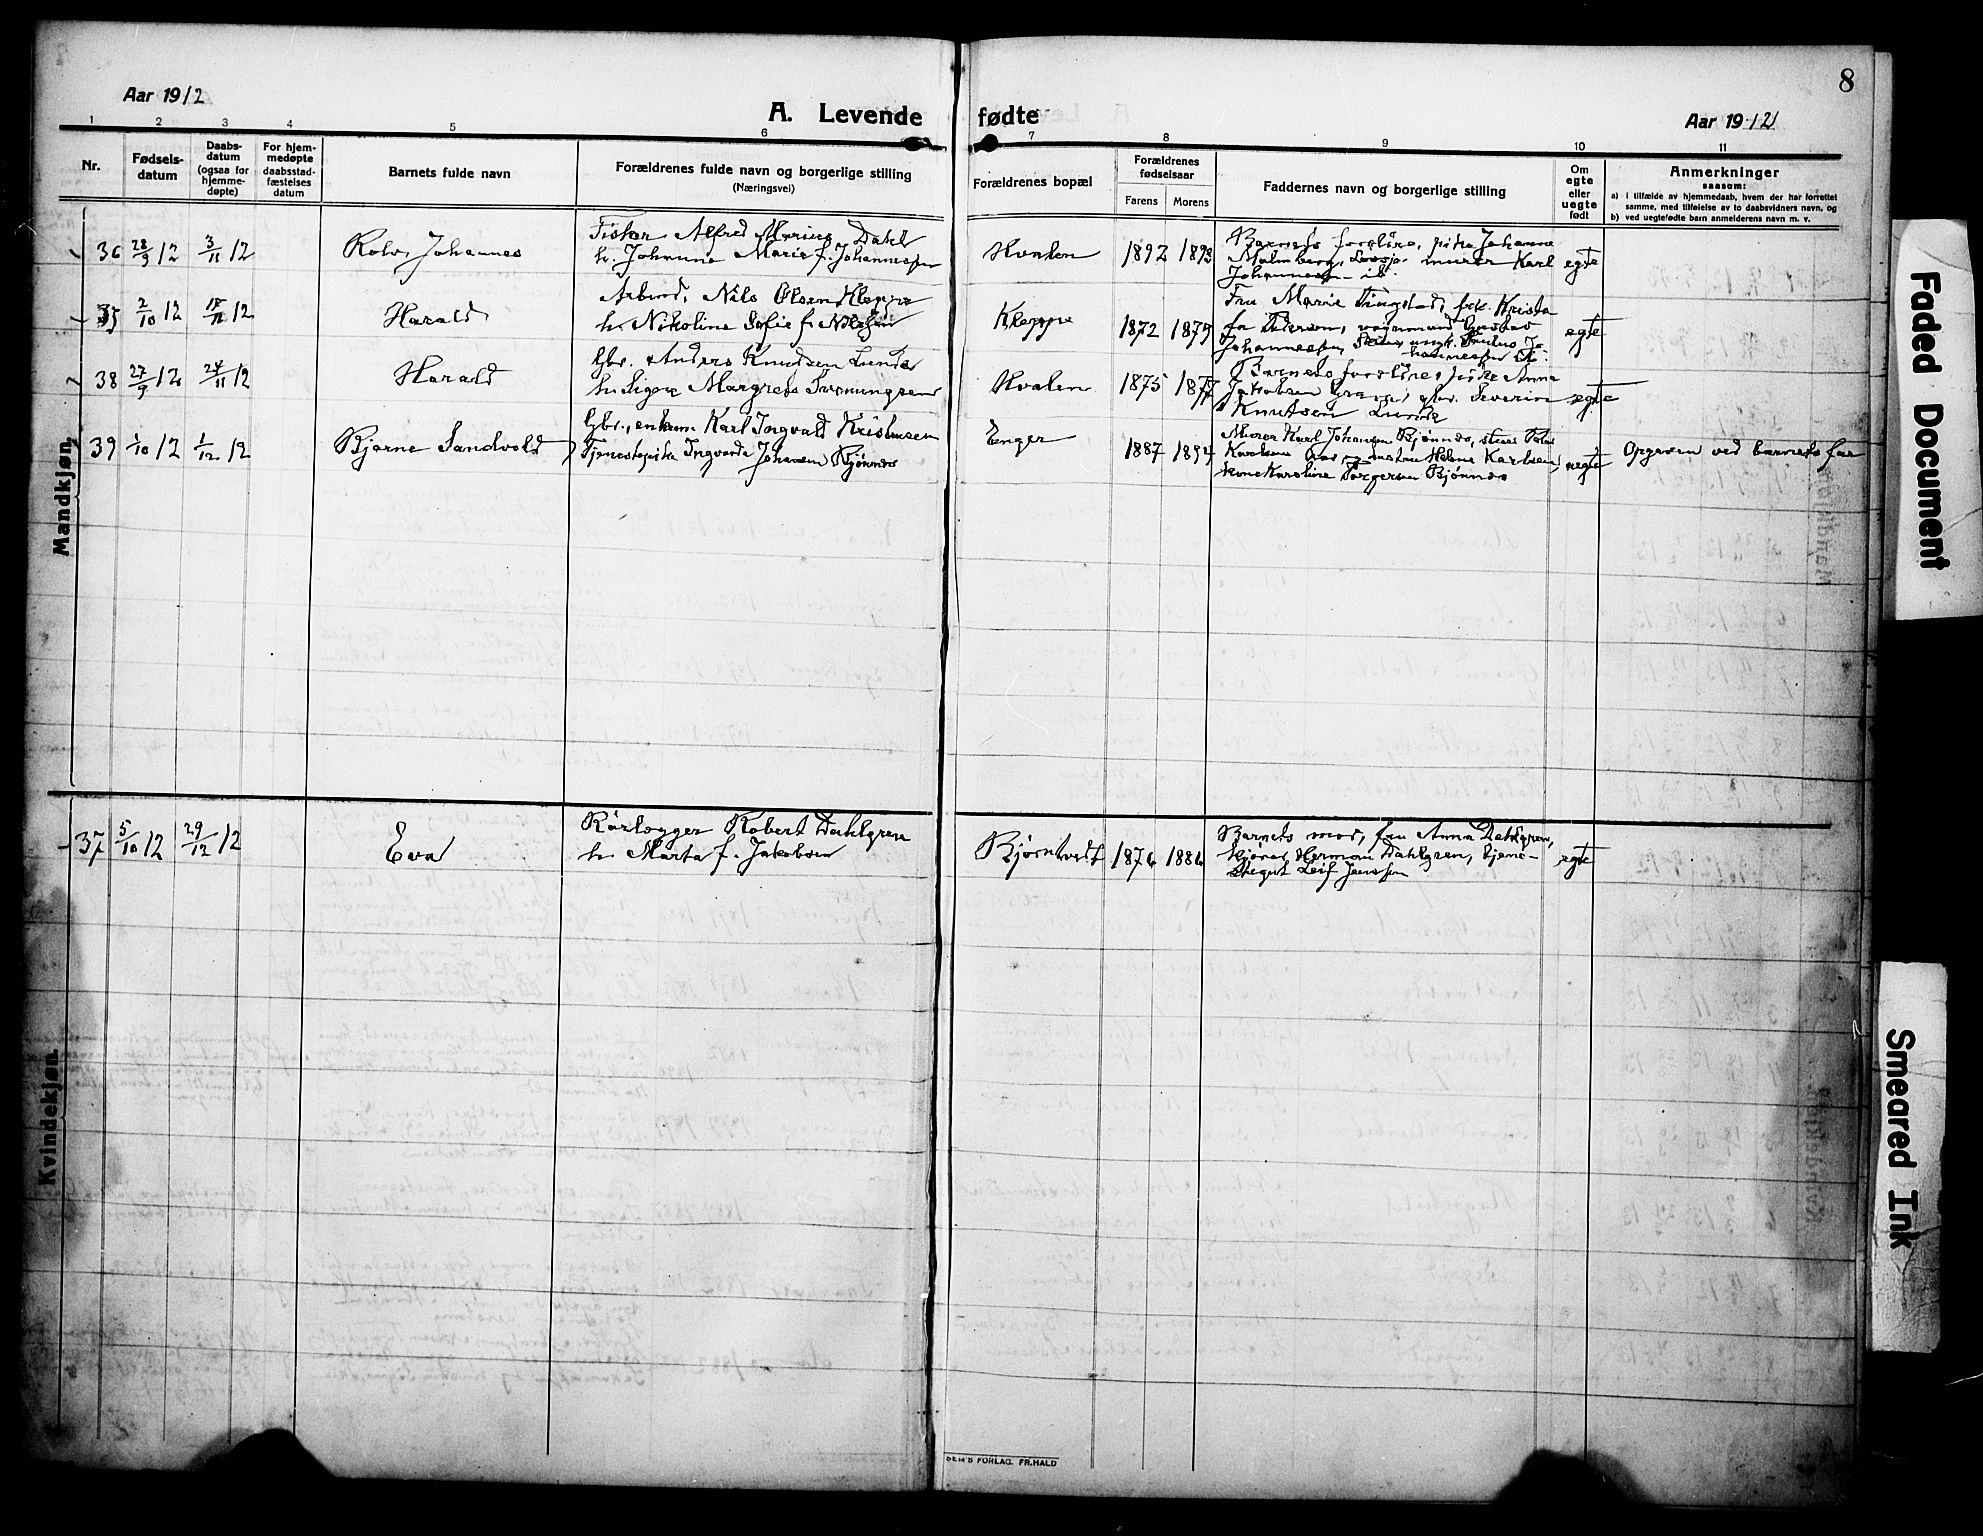 8
Aar 1912
A. Levende fødte
Aar 1912
1 2 3 4 5 6 7 8 9 10 11
Nr.
Fødsels-
datum
Daabs-
datum
(ogsaa for
hjemme-
døpte)
For hjem-
medøpte
daabsstad-
fæstelses
datum
Barnets fulde navn
Forældrenes fulde navn og borgerlige stilling
(Næringsvei)
Forældrenes bopæl
Forældrenes
fødselsaar
Farens Morens
Faddernes navn og borgerlige stilling
Om
egte
eller
uegte
født
Anmerkninger
saasom:
a) i tilfælde av hjemmedaab, hvem der har forrettet
samme, med tilføielse av to daabsvidners navn, og
b) ved uegtefødte barn anmelderens navn m. v.
Mandkjøn.
36 28/9 12 3/11 12
Rolv Johannes
Fisker Alfred Marius Dahl
h. Johanne Marie f. Johannessen
Hvalen
1892 1893
Barnets forældre, pike Johanne
Malmberg, murer Karl
Johannesen ib.
egte
35 2/10 12 12
Harald
Arbmd. Nils Olsen Kleppe
h. Nikoline Sofie f. Nilsen
Kleppe
1872 1875
Fru Marie Tingstad, frk. Krista
Pedersen, vognmand Gustav
Johannessen,
egte
38 27/9 12 24/11 12
Harald
Gbr. Anders Knudsen Lunde
h. Signe Margrete
Hvalen
1875 1877
Barnets forældre, pike Anna
Jakobsen gbr. Severin
Knutsen Lunde
egte
39 1/10 12 1/12 12
Bjarne Sandvold
Gbr., enkem. Karl Ingvald Kristensen
Tjenestepike Ingvarda Johansen Bjønnes
Enger
1887 1894
Murer Karl Johansen Bjønnes,
Karlsen og Helene Karlsen,
kone Karoline Torgersen Bjønnes
uegte
Opgaven ved barnets far
Kvindekjøn.
37 5/10 12 29/12 12
Eva
Rørlægger Robert Dahlgren
h. Marta f. Jakobsen
Bjørntvedt
1874 1884
Barnets mor, fru Anna Dahlgren,
Herman Dahlgren, tjene-
stegut Leif Jenssen
egte
FORLAG. FR. HALD
Faded Document
Smeared Ink